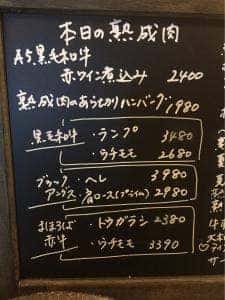 本日の熟成肉
A5黒毛和牛
赤ワイン煮込み 2400
熟成肉のあらちかりハンバーグ 1980
黒毛和牛
・ランプ 3480
・ウチモモ 2680
ブラック
アンガス
・ヘレ 3980
・肩ロース(プライム) 2980
まほろば
赤牛
・トウガラシ 2380
・ウチモモ 3390